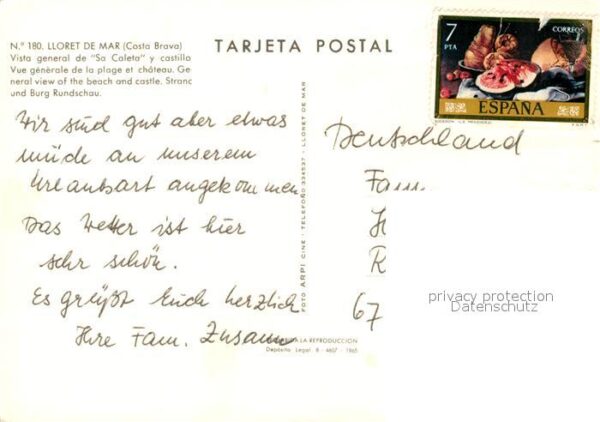 N.º 180. LLORET DE MAR (Costa Brava)
Vista general de "Sa Caleta" y castillo
Vue générale de la plage et château. Ge
neral view of the beach and castle. Stranc
und Burg Rundschau.
TARJETA POSTAL
7
PTA
CORREOS
ESPAÑA
Wir sind gut aber etwas
müde an unserem
Urlaubsort angekommen
Das Wetter ist hier
sehr schön.
Es grüßt Euch herzlich
Ihre Fam.
FOTO ARPI CINE - TELEFONO 334537 - LLORET DE MAR
LA REPRODUCCION
Depósito Legal B - 4607 - 1965
Deutschland
Fam.
H
R
67
privacy protection
Datenschutz